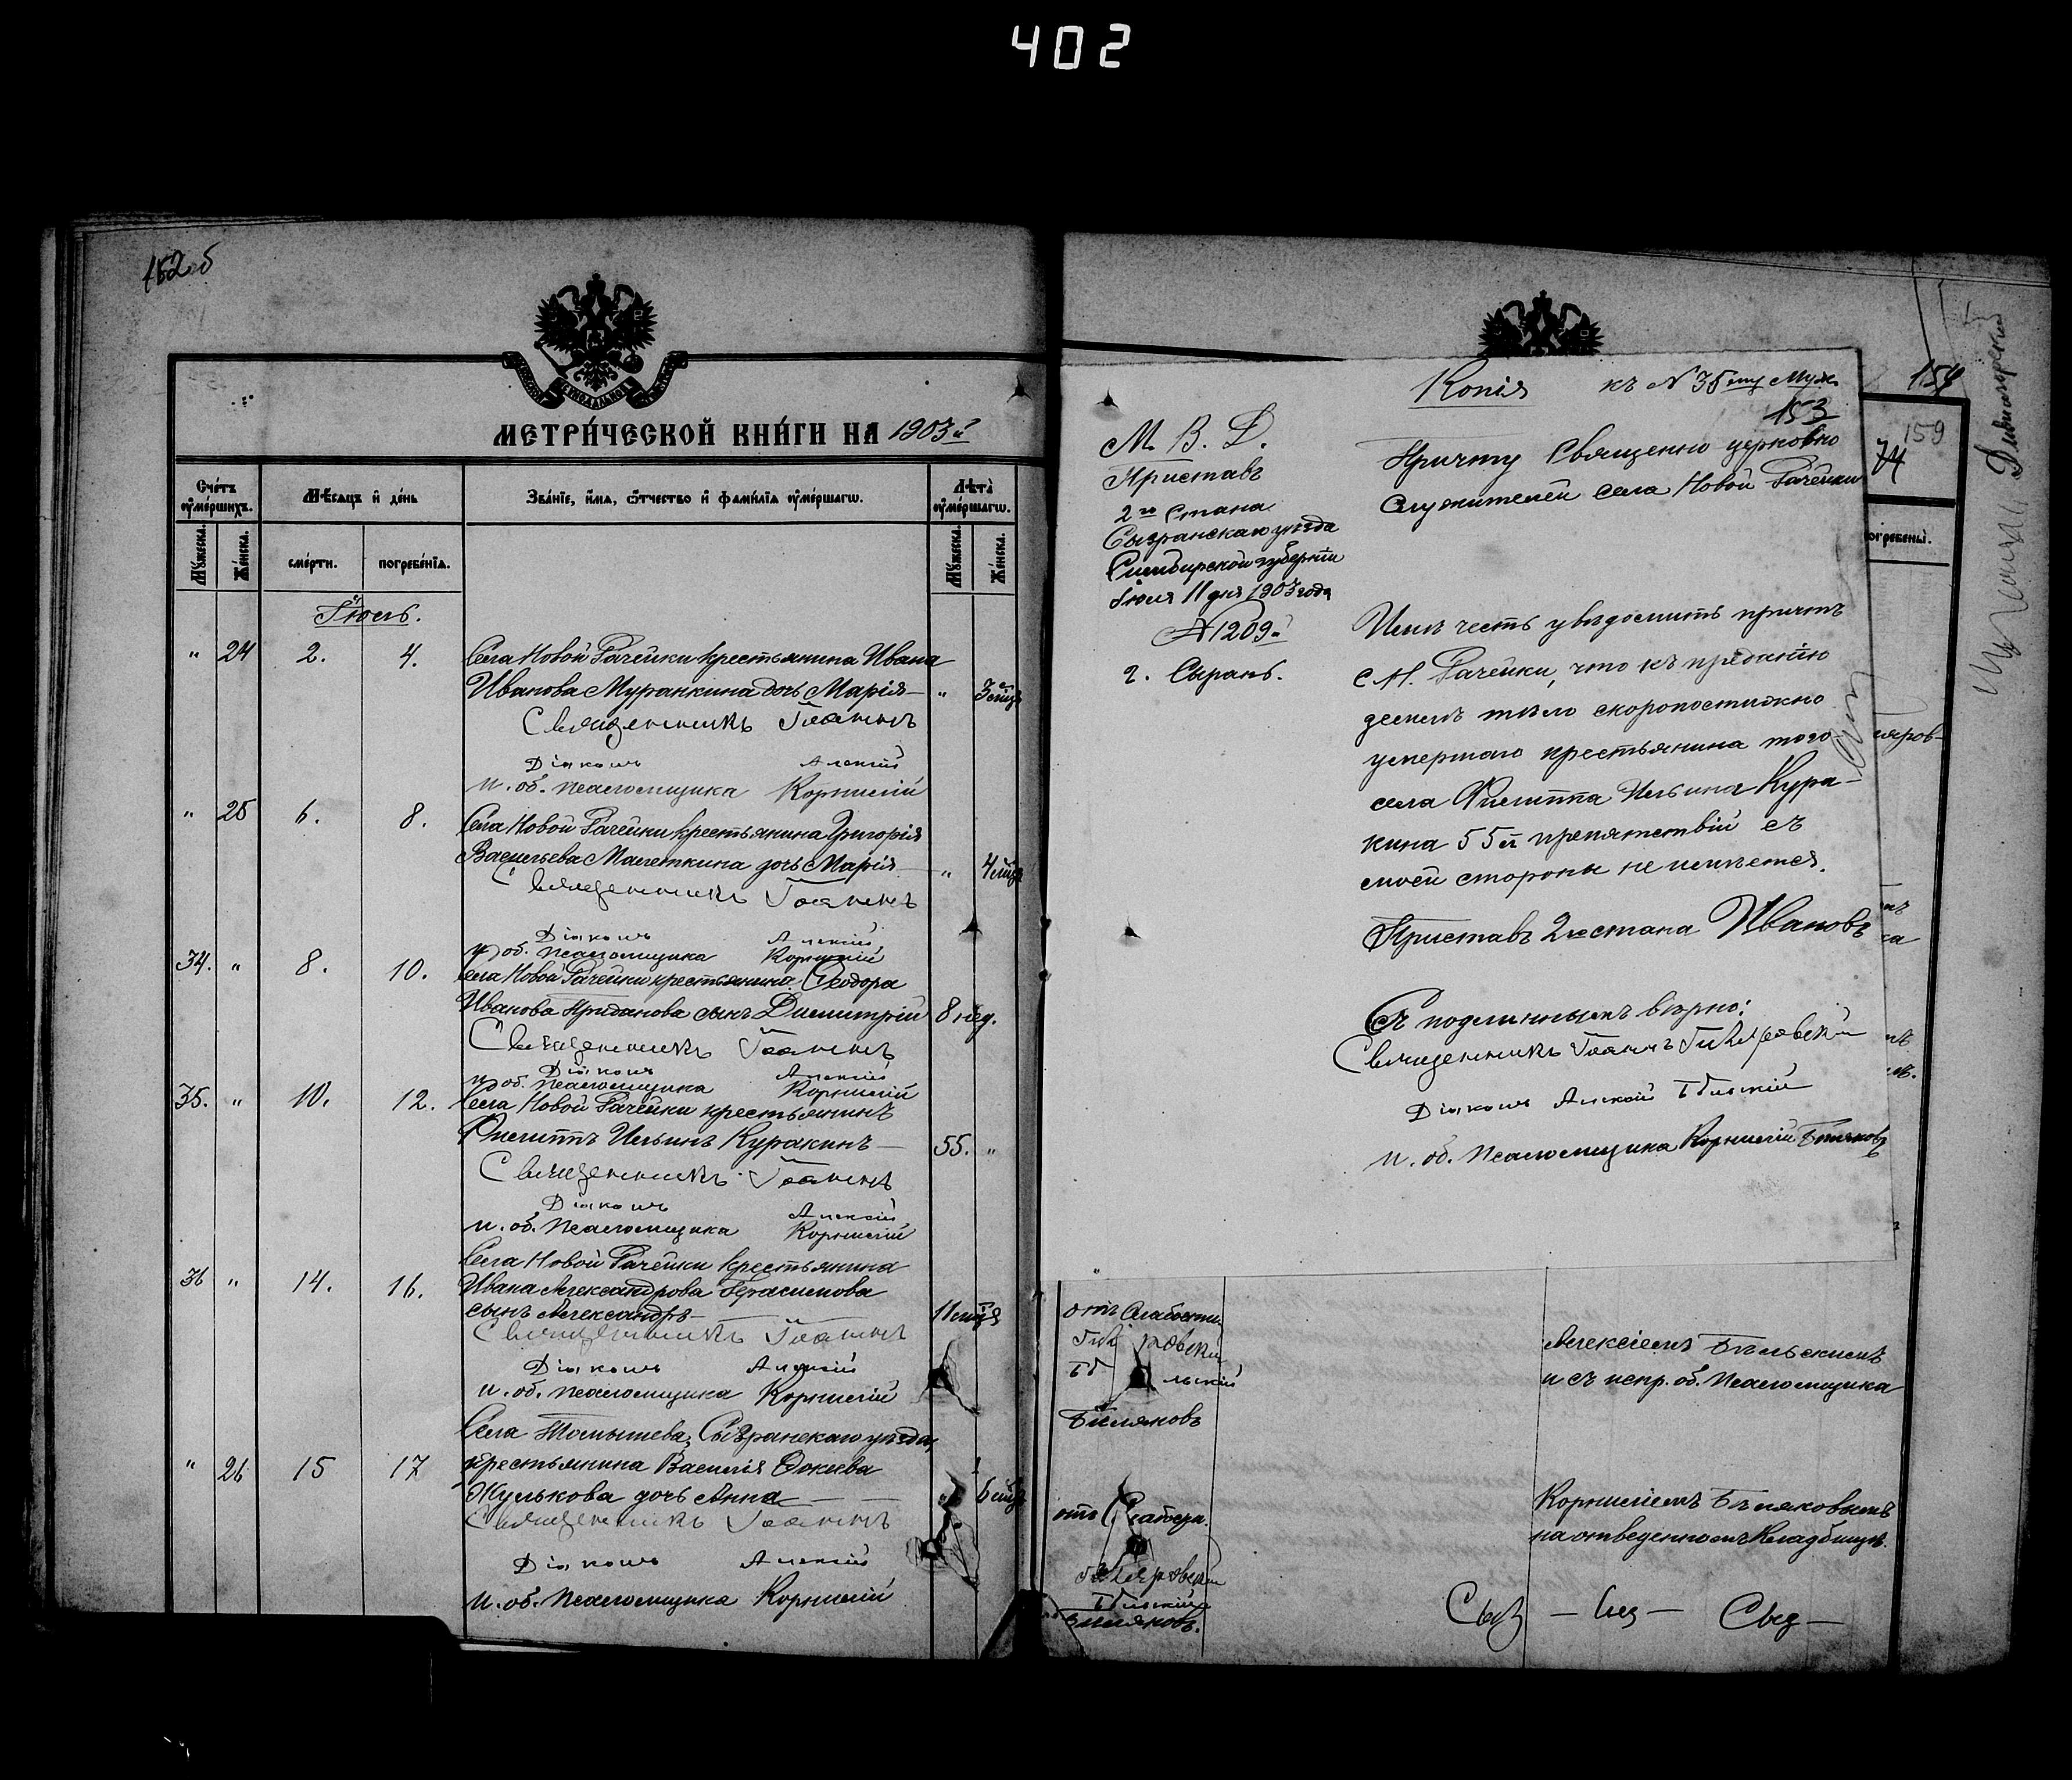 402
152 б
МЕТРИ́ЧЕСКОЙ КНИ́ГИ НА 1903й
Счетъ ѹмершихъ.
Мѣсяцъ и день
Званіе, имя, отчество и фамилія ѹмершагѡ.
Лѣта ѹмершагѡ.
Мужеска.
Женска.
смерти.
погребенія.
Мужеска.
Женска.
Іюль.
" 24 2. 4. Села Новой Рачейки крестьянина Ивана
Иванова Муранкина дочь Марія — " 3 мѣс.
Священникъ Іоаннъ
Діаконъ Алексій
и. об. псаломщика Корнилій
" 25 6. 8. Села Новой Рачейки крестьянина Григорія
Васильева Малеткина дочь Марія — " 4 мѣс.
Священникъ Іоаннъ
Діаконъ Алексій
и. об. псаломщика Корнилій
34. " 8. 10. Села Новой Рачейки крестьянина Ѳеодора
Иванова Приданова сынъ Димитрій 8 нед.
Священникъ Іоаннъ
Діаконъ Алексій
и. об. псаломщика Корнилій
35. " 10. 12. Села Новой Рачейки крестьянинъ
Филиппъ Ильинъ Куракинъ — 55. "
Священникъ Іоаннъ
Діаконъ Алексій
и. об. псаломщика Корнилій
36 " 14. 16. Села Новой Рачейки крестьянина
Ивана Александрова Герасимова
сынъ Александръ — 11 мѣс.
Священникъ Іоаннъ
Діаконъ Алексій
и. об. псаломщика Корнилій
Села Томышева, Сызранскаго уѣзда,
" 26 15 17 крестьянина Василія Фокиева
Жулькова дочь Анна — 6 мѣс.
Священникъ Іоаннъ
Діаконъ Алексій
и. об. псаломщика Корнилій
Копія къ № 35му Муж.
153
М. В. Д.
Приставъ
2го Стана
Сызранскаго уѣзда
Симбирской губерніи
Іюля 11 дня 1903 года
№ 1209й
г. Сызрань.
Причту Священно церковно
служителей села Новой Рачейки
Имѣю честь увѣдомить причтъ
с. Н. Рачейки, что къ преданію
землѣ тѣла скоропостижно
умершаго крестьянина того
села Филиппа Ильина Кура-
кина 55 л. препятствій съ
моей стороны не имѣется.
Приставъ 2го стана Ивановъ
Съ подлиннымъ вѣрно:
Священникъ Іоаннъ
Діаконъ Алексій Бѣльскій
и. об. псаломщика Корнилій Бѣляковъ
154
159
74
погребены.
отъ слабости
Бѣльскій
Бѣляковъ
Алексіемъ Бѣльскимъ
и съ испр. об. псаломщика
отъ слабости.
Бѣльскій
Бѣляковъ.
Корниліемъ Бѣляковымъ
на отведенномъ кладбищѣ.